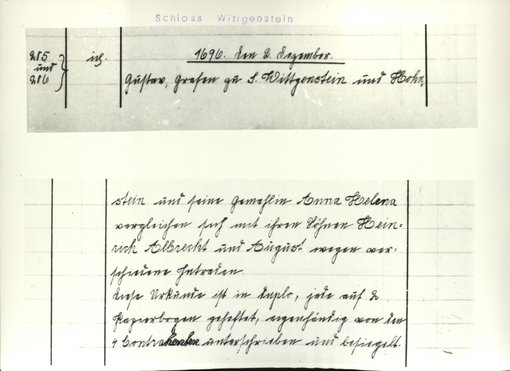 Schloss Wittgenstein
215 und 216
1696. den 2. Dezember.
Gustav, Grafen zu S. Wittgenstein und Hohn,
stein und seine Gemahlin Anna Helena
vergleichen sich mit ihren Söhnen Hein-
rich Albrecht und August wegen ver-
schiedene
Diese Urkunde ist in duplo, jede auf 2
Papierbogen geheftet, eigenhändig von den
4 Contrahenten unterschrieben und besiegelt.